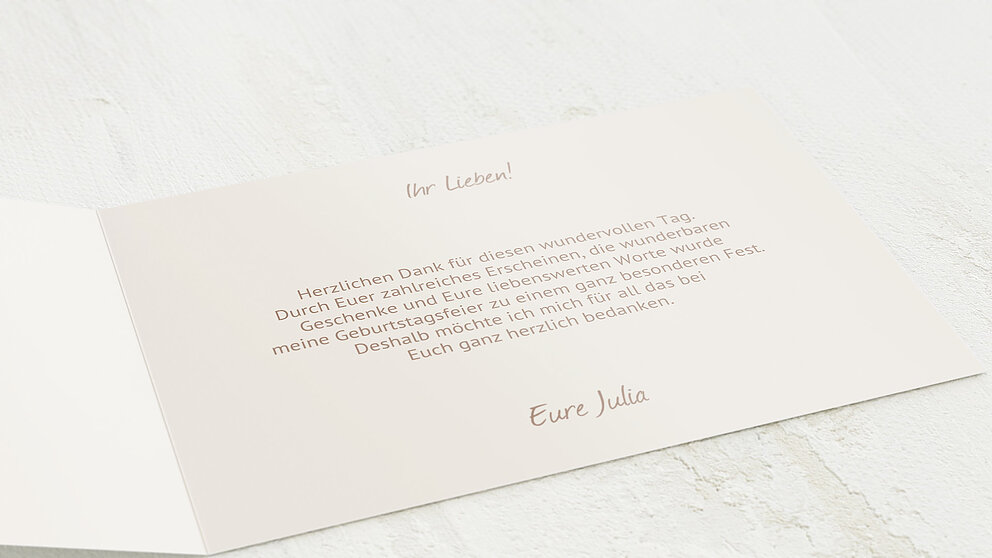 Ihr Lieben!
Herzlichen Dank für diesen wundervollen Tag.
Durch Euer zahlreiches Erscheinen, die wunderbaren
Geschenke und Eure liebenswerten Worte wurde
meine Geburtstagsfeier zu einem ganz besonderen Fest.
Deshalb möchte ich mich für all das bei
Euch ganz herzlich bedanken.
Eure Julia